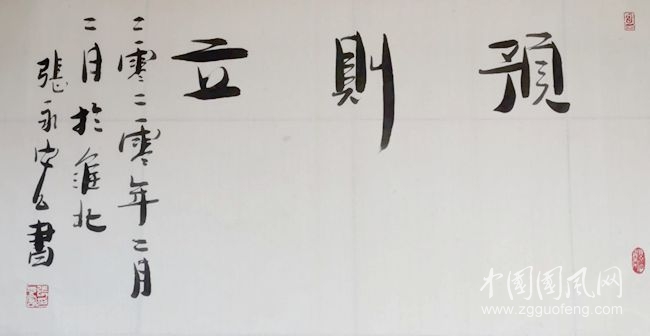 預則立
二零二零年二月
二月於淮北
張永書
中国國风网
www.zgguofeng.com